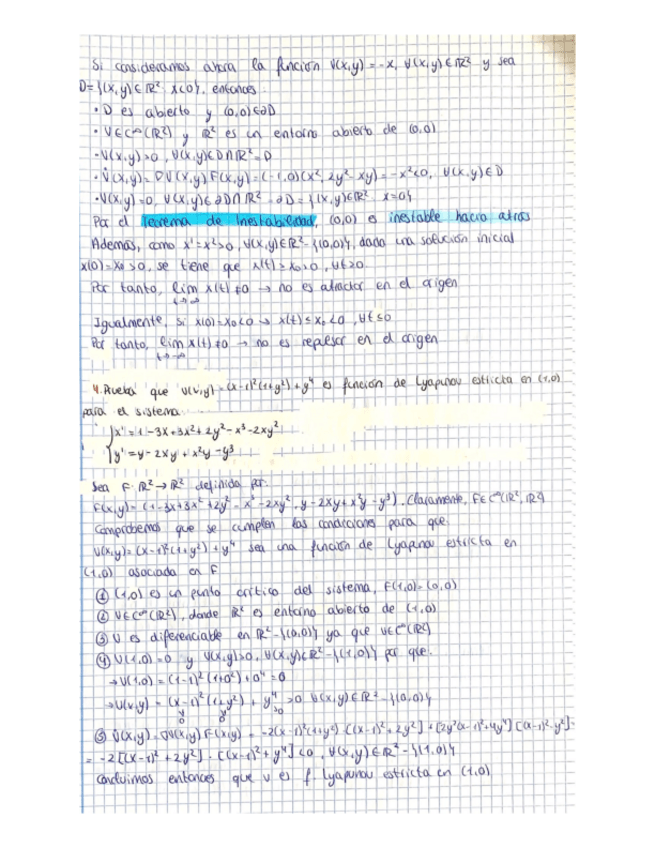 Si consideramos ahora la función V(x,y) = -x, ∀(x,y) ∈ ℝ² y sea
D={(x,y) ∈ ℝ² : x<0}, entonces
• D es abierto y (0,0) ∈ ∂D
• V ∈ C^∞(ℝ²) y ℝ² es un entorno abierto de (0,0)
• V(x,y) >0, ∀(x,y) ∈ D∩ℝ² = D
• V̇(x,y) = ∇V(x,y) F(x,y) = (-1,0)(x², 2y² - xy) = -x² <0, ∀(x,y) ∈ D
• V(x,y) = 0, ∀(x,y) ∈ ∂D∩ℝ² = ∂D = {(x,y) ∈ ℝ² : x=0}
Por el Teorema de Inestabilidad, (0,0) es inestable hacia atrás
Además, como x' = x² >0, ∀(x,y) ∈ ℝ² - {(0,0)}, dada una solución inicial
x(0) = x₀ >0, se tiene que x(t) > x₀ >0, ∀t≥0
Por tanto, lim x(t) ≠0 → no es atractor en el origen
t→∞
Igualmente, si x(0) = x₀ <0 → x(t) ≤ x₀ <0, ∀t≤0
Por tanto, lim x(t) ≠0 → no es repulsor en el origen
t→-∞
4. Prueba que V(x,y) = (x-1)²(1+y²) + y⁴ es función de Lyapunov estricta en (1,0)
para el sistema
{x' = 1-3x+3x²+2y²-x³-2xy²
y' = y-2xy+x²y-y³
Sea F: ℝ² → ℝ² definida por:
F(x,y) = (1-3x+3x²+2y²-x³-2xy², y-2xy+x²y-y³). Claramente, F ∈ C^∞(ℝ², ℝ²)
Comprobemos que se cumplen las condiciones para que
V(x,y) = (x-1)²(1+y²) + y⁴ sea una función de Lyapunov estricta en
(1,0) asociada en F
① (1,0) es un punto crítico del sistema, F(1,0) = (0,0)
② V ∈ C^∞(ℝ²), donde ℝ² es entorno abierto de (1,0)
③ V es diferenciable en ℝ² - {(0,0)} ya que V ∈ C^∞(ℝ²)
④ V(1,0) = 0 y V(x,y)>0, ∀(x,y) ∈ ℝ² - {(1,0)} por que:
→ V(1,0) = (1-1)²(1+0²) + 0⁴ = 0
→ V(x,y) = (x-1)²(1+y²) + y⁴ >0 ∀(x,y) ∈ ℝ² - {(0,0)}
⑤ V̇(x,y) = ∇V(x,y) F(x,y) = -2(x-1)²(1+y²) [(x-1)²+2y²] + [2y²(x-1)²+4y⁴] [(x-1)²-y²] =
= -2 [(x-1)² + 2y²] · [(x-1)² + y⁴] <0, ∀(x,y) ∈ ℝ² - {(1,0)}
Concluimos entonces que V es f. Lyapunov estricta en (1,0)